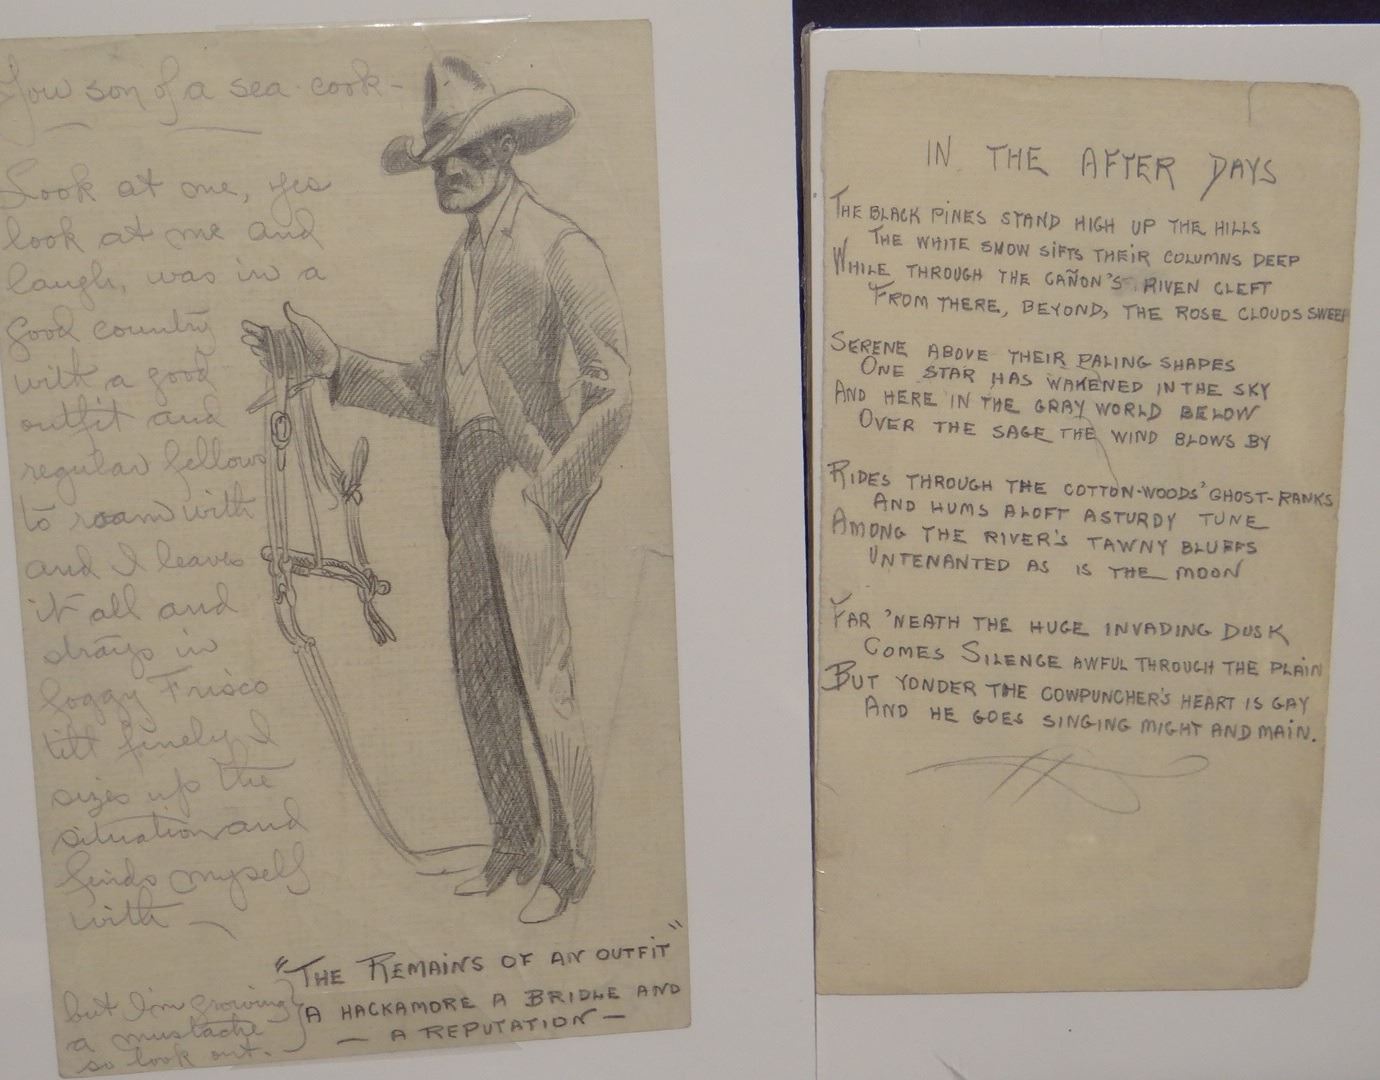 You son of a sea-cook-
Look at me, yes
look at me and
laugh, was in a
good country
with a good
outfit and
regular fellows
to roam with
and I leaves
it all and
drays in
foggy Frisco
till finely I
sizes up the
situation and
finds myself
with —
"THE REMAINS OF AN OUTFIT"
A HACKAMORE A BRIDLE AND
— A REPUTATION —
but I'm growing
a mustache
so look out.
IN THE AFTER DAYS
THE BLACK PINES STAND HIGH UP THE HILLS
THE WHITE SNOW SIFTS THEIR COLUMNS DEEP
WHILE THROUGH THE CAÑON'S RIVEN CLEFT
FROM THERE, BEYOND, THE ROSE CLOUDS SWEEP
SERENE ABOVE THEIR PALING SHAPES
ONE STAR HAS WAKENED IN THE SKY
AND HERE IN THE GRAY WORLD BELOW
OVER THE SAGE THE WIND BLOWS BY
RIDES THROUGH THE COTTON-WOODS' GHOST-RANKS
AND HUMS ALOFT A STURDY TUNE
AMONG THE RIVER'S TAWNY BLUFFS
UNTENANTED AS IS THE MOON
FAR 'NEATH THE HUGE INVADING DUSK
COMES SILENCE AWFUL THROUGH THE PLAIN
BUT YONDER THE COWPUNCHER'S HEART IS GAY
AND HE GOES SINGING MIGHT AND MAIN.